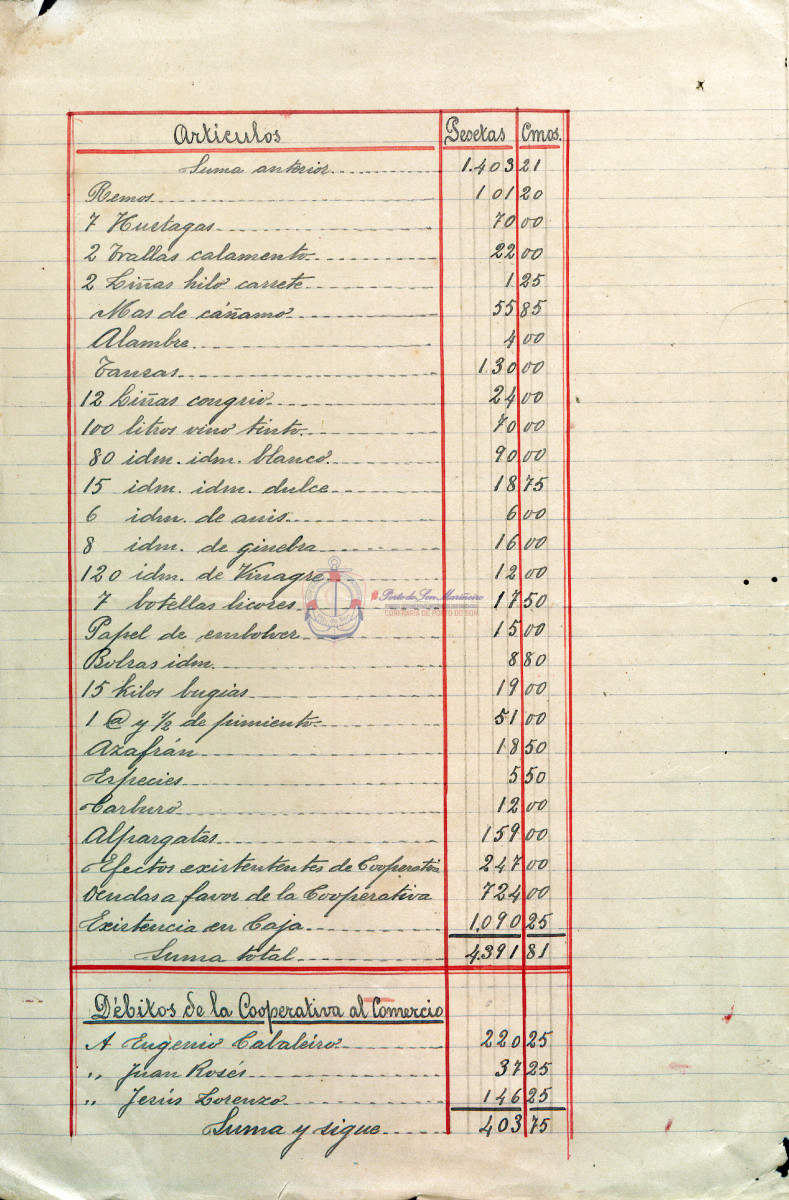 Artículos Pesetas Cmos.
Suma anterior 1.403 21
Remos 101 20
7 Hurtagas 70 00
2 Trallas calamento 22 00
2 Liñas hilo carrete 1 25
Mas de cáñamo 55 85
Alambre 4 00
Tanzas 130 00
12 Liñas congrio 24 00
100 litros vino tinto 70 00
80 idm. idm. blanco 90 00
15 idm. idm. dulce 18 75
6 idm. de anis 6 00
8 idm. de ginebra 16 00
120 idm. de Vinagre 12 00
7 botellas licores 17 50
Porto do Son Mariñeiro
CONFRARÍA DE PORTO DO SON
Papel de embolver 15 00
Bolsas idm. 8 80
15 kilos bugias 19 00
1 @ y 1/2 de pimiento 51 00
Azafrán 18 50
Especies 5 50
Carburo 12 00
Alpargatas 159 00
Efectos existententes de Cooperativa 247 00
Deudas a favor de la Cooperativa 724 00
Existencia en Caja 1,090 25
Suma total 4.391 81
Débitos de la Cooperativa al Comercio
A Eugenio Cabaleiro 220 25
,, Juan Rosés 37 25
,, Jesús Lorenzo 146 25
Suma y sigue 403 75